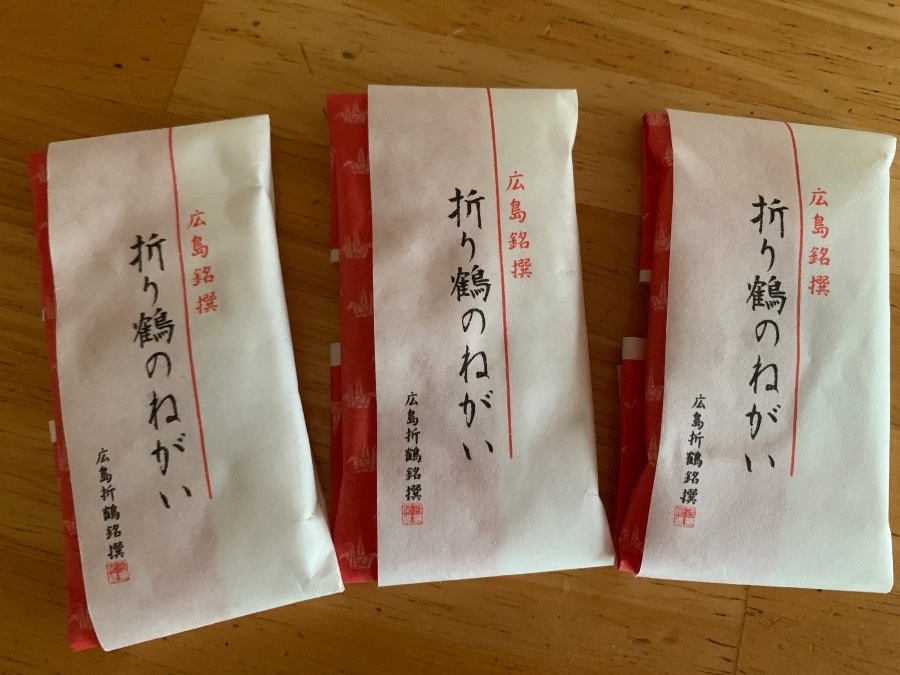 広島銘撰
折り鶴のねがい
広島折鶴銘撰
広島銘撰
折り鶴のねがい
広島折鶴銘撰
広島銘撰
折り鶴のねがい
広島折鶴銘撰